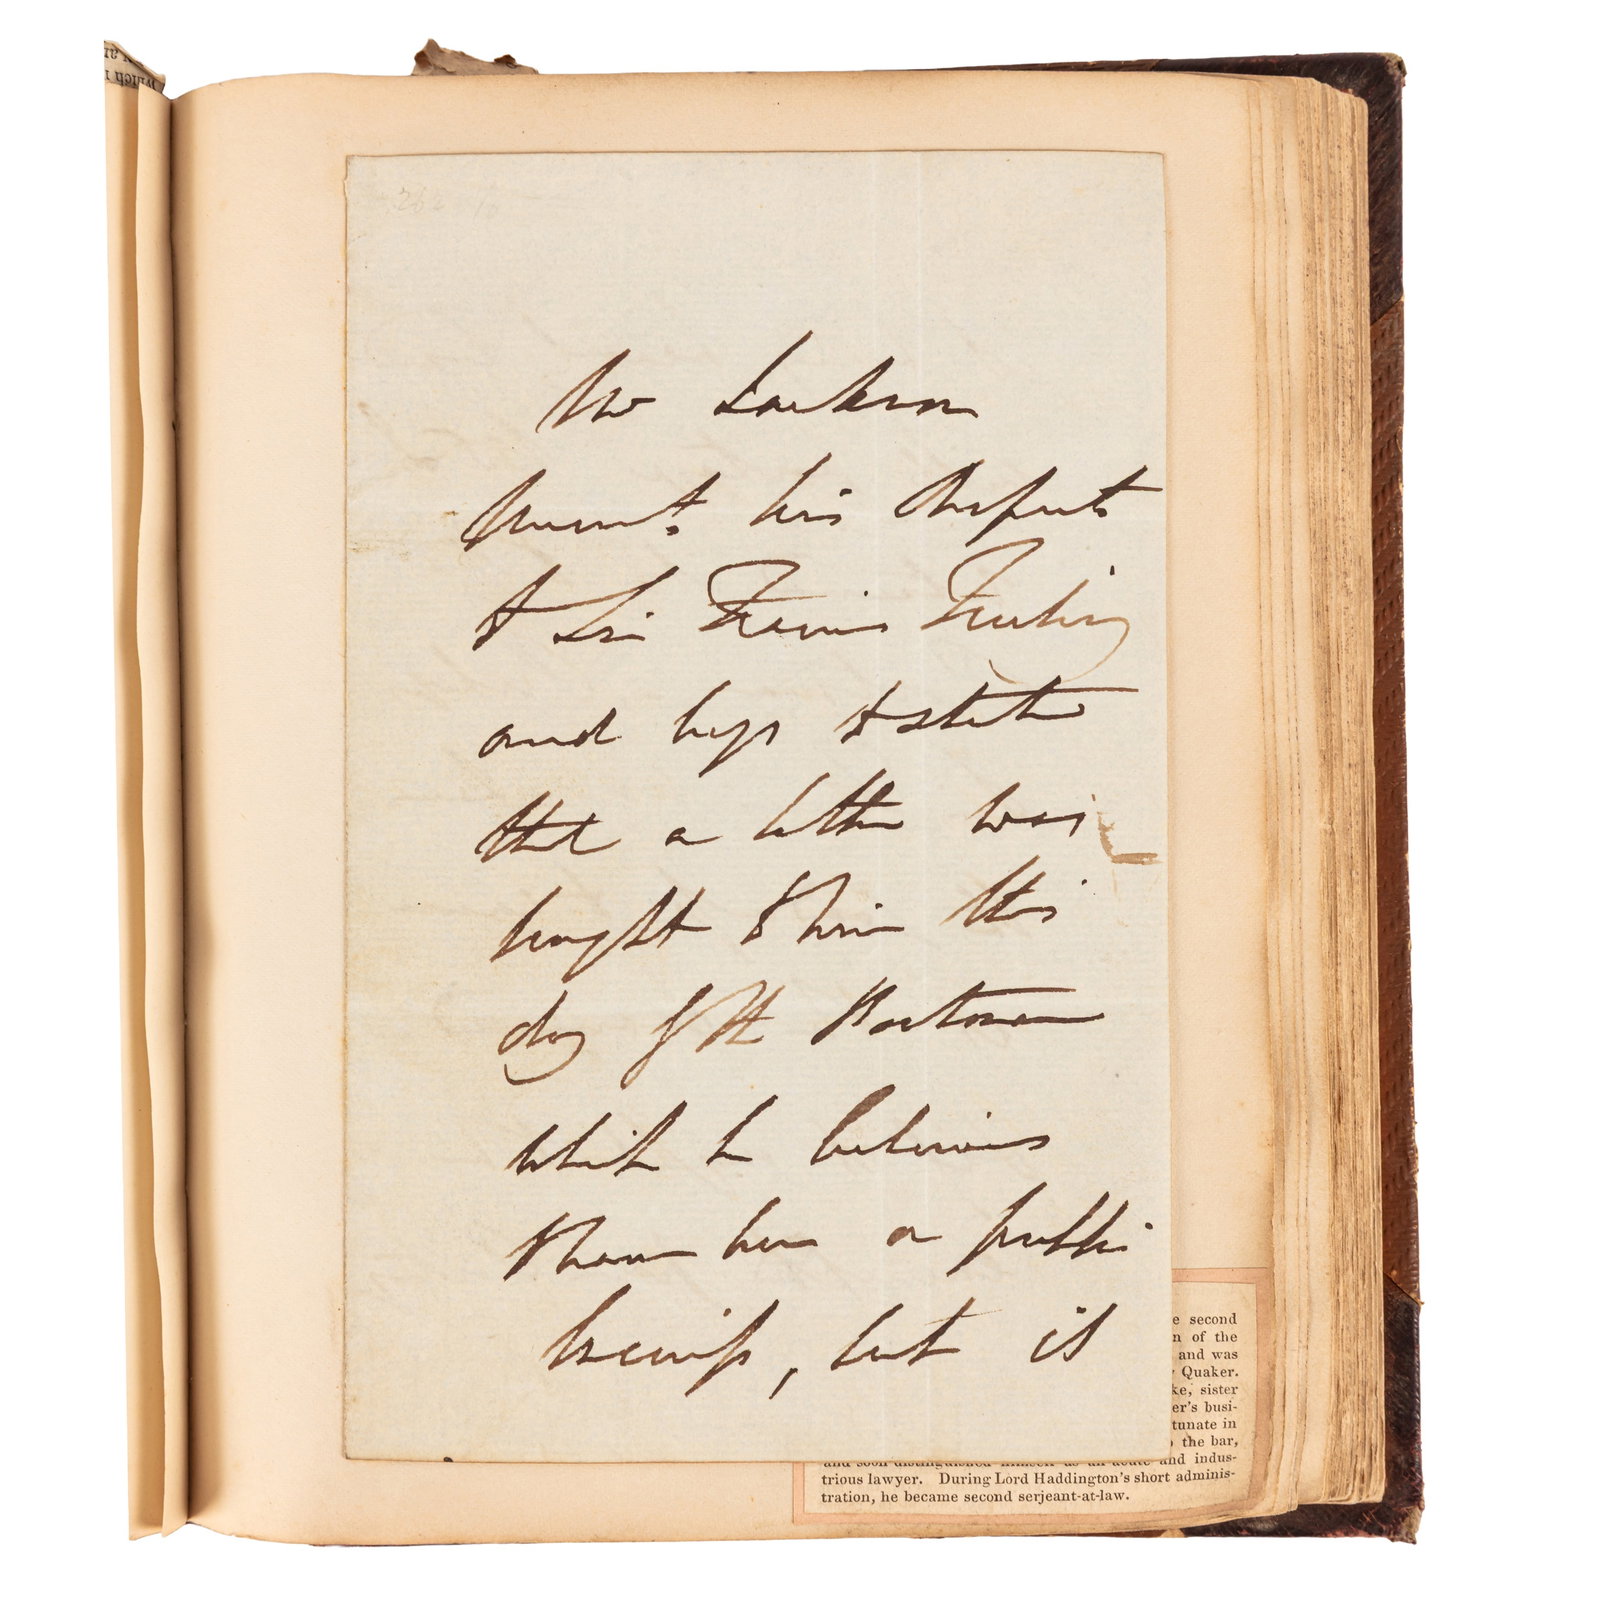 which
Mr Jackson
Present. his Respects
to Sir Francis Freeling
and begs to state
that a letter was
brought to him this
day by the Postman
which he believes
to have been on public
business, but is
second
of the
and was
Quaker.
sister
busi-
in
the bar,
and soon distinguished himself as an acute and indus-
trious lawyer. During Lord Haddington's short adminis-
tration, he became second serjeant-at-law.